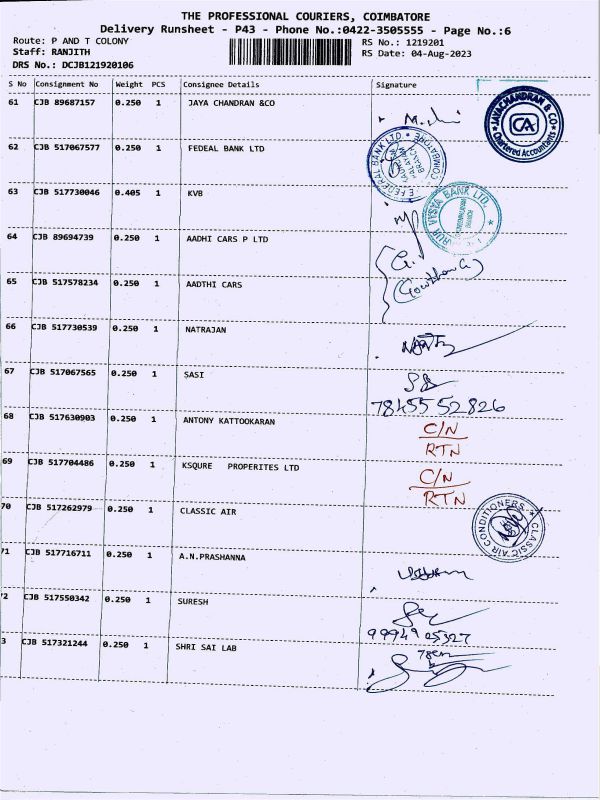 THE PROFESSIONAL COURIERS, COIMBATORE
Delivery Runsheet - P43 - Phone No.:0422-3505555 - Page No.:6
Route: P AND T COLONY RS No.: 1219201
Staff: RANJITH RS Date: 04-Aug-2023
DRS No.: DCJB121920106
S No Consignment No Weight PCS Consignee Details Signature
61 CJB 89687157 0.250 1 JAYA CHANDRAN &CO
JAYACHANDRAN & CO
CA
Chartered Accountants
62 CJB 517067577 0.250 1 FEDEAL BANK LTD
FEDERAL BANK LTD.
COIMBATORE
BRANCH
63 CJB 517730046 0.405 1 KVB
VYSYA BANK LTD.
BRANCH
64 CJB 89694739 0.250 1 AADHI CARS P LTD
65 CJB 517578234 0.250 1 AADTHI CARS
66 CJB 517730539 0.250 1 NATRAJAN
67 CJB 517067565 0.250 1 SASI
78455 52826
68 CJB 517630903 0.250 1 ANTONY KATTOOKARAN
C/N
RTN
69 CJB 517704486 0.250 1 KSQURE PROPERITES LTD
C/N
RTN
70 CJB 517262979 0.250 1 CLASSIC AIR
CLASSIC AIR CONDITIONERS
71 CJB 517716711 0.250 1 A.N.PRASHANNA
2 CJB 517550342 0.250 1 SURESH
99949 05327
3 CJB 517321244 0.250 1 SHRI SAI LAB